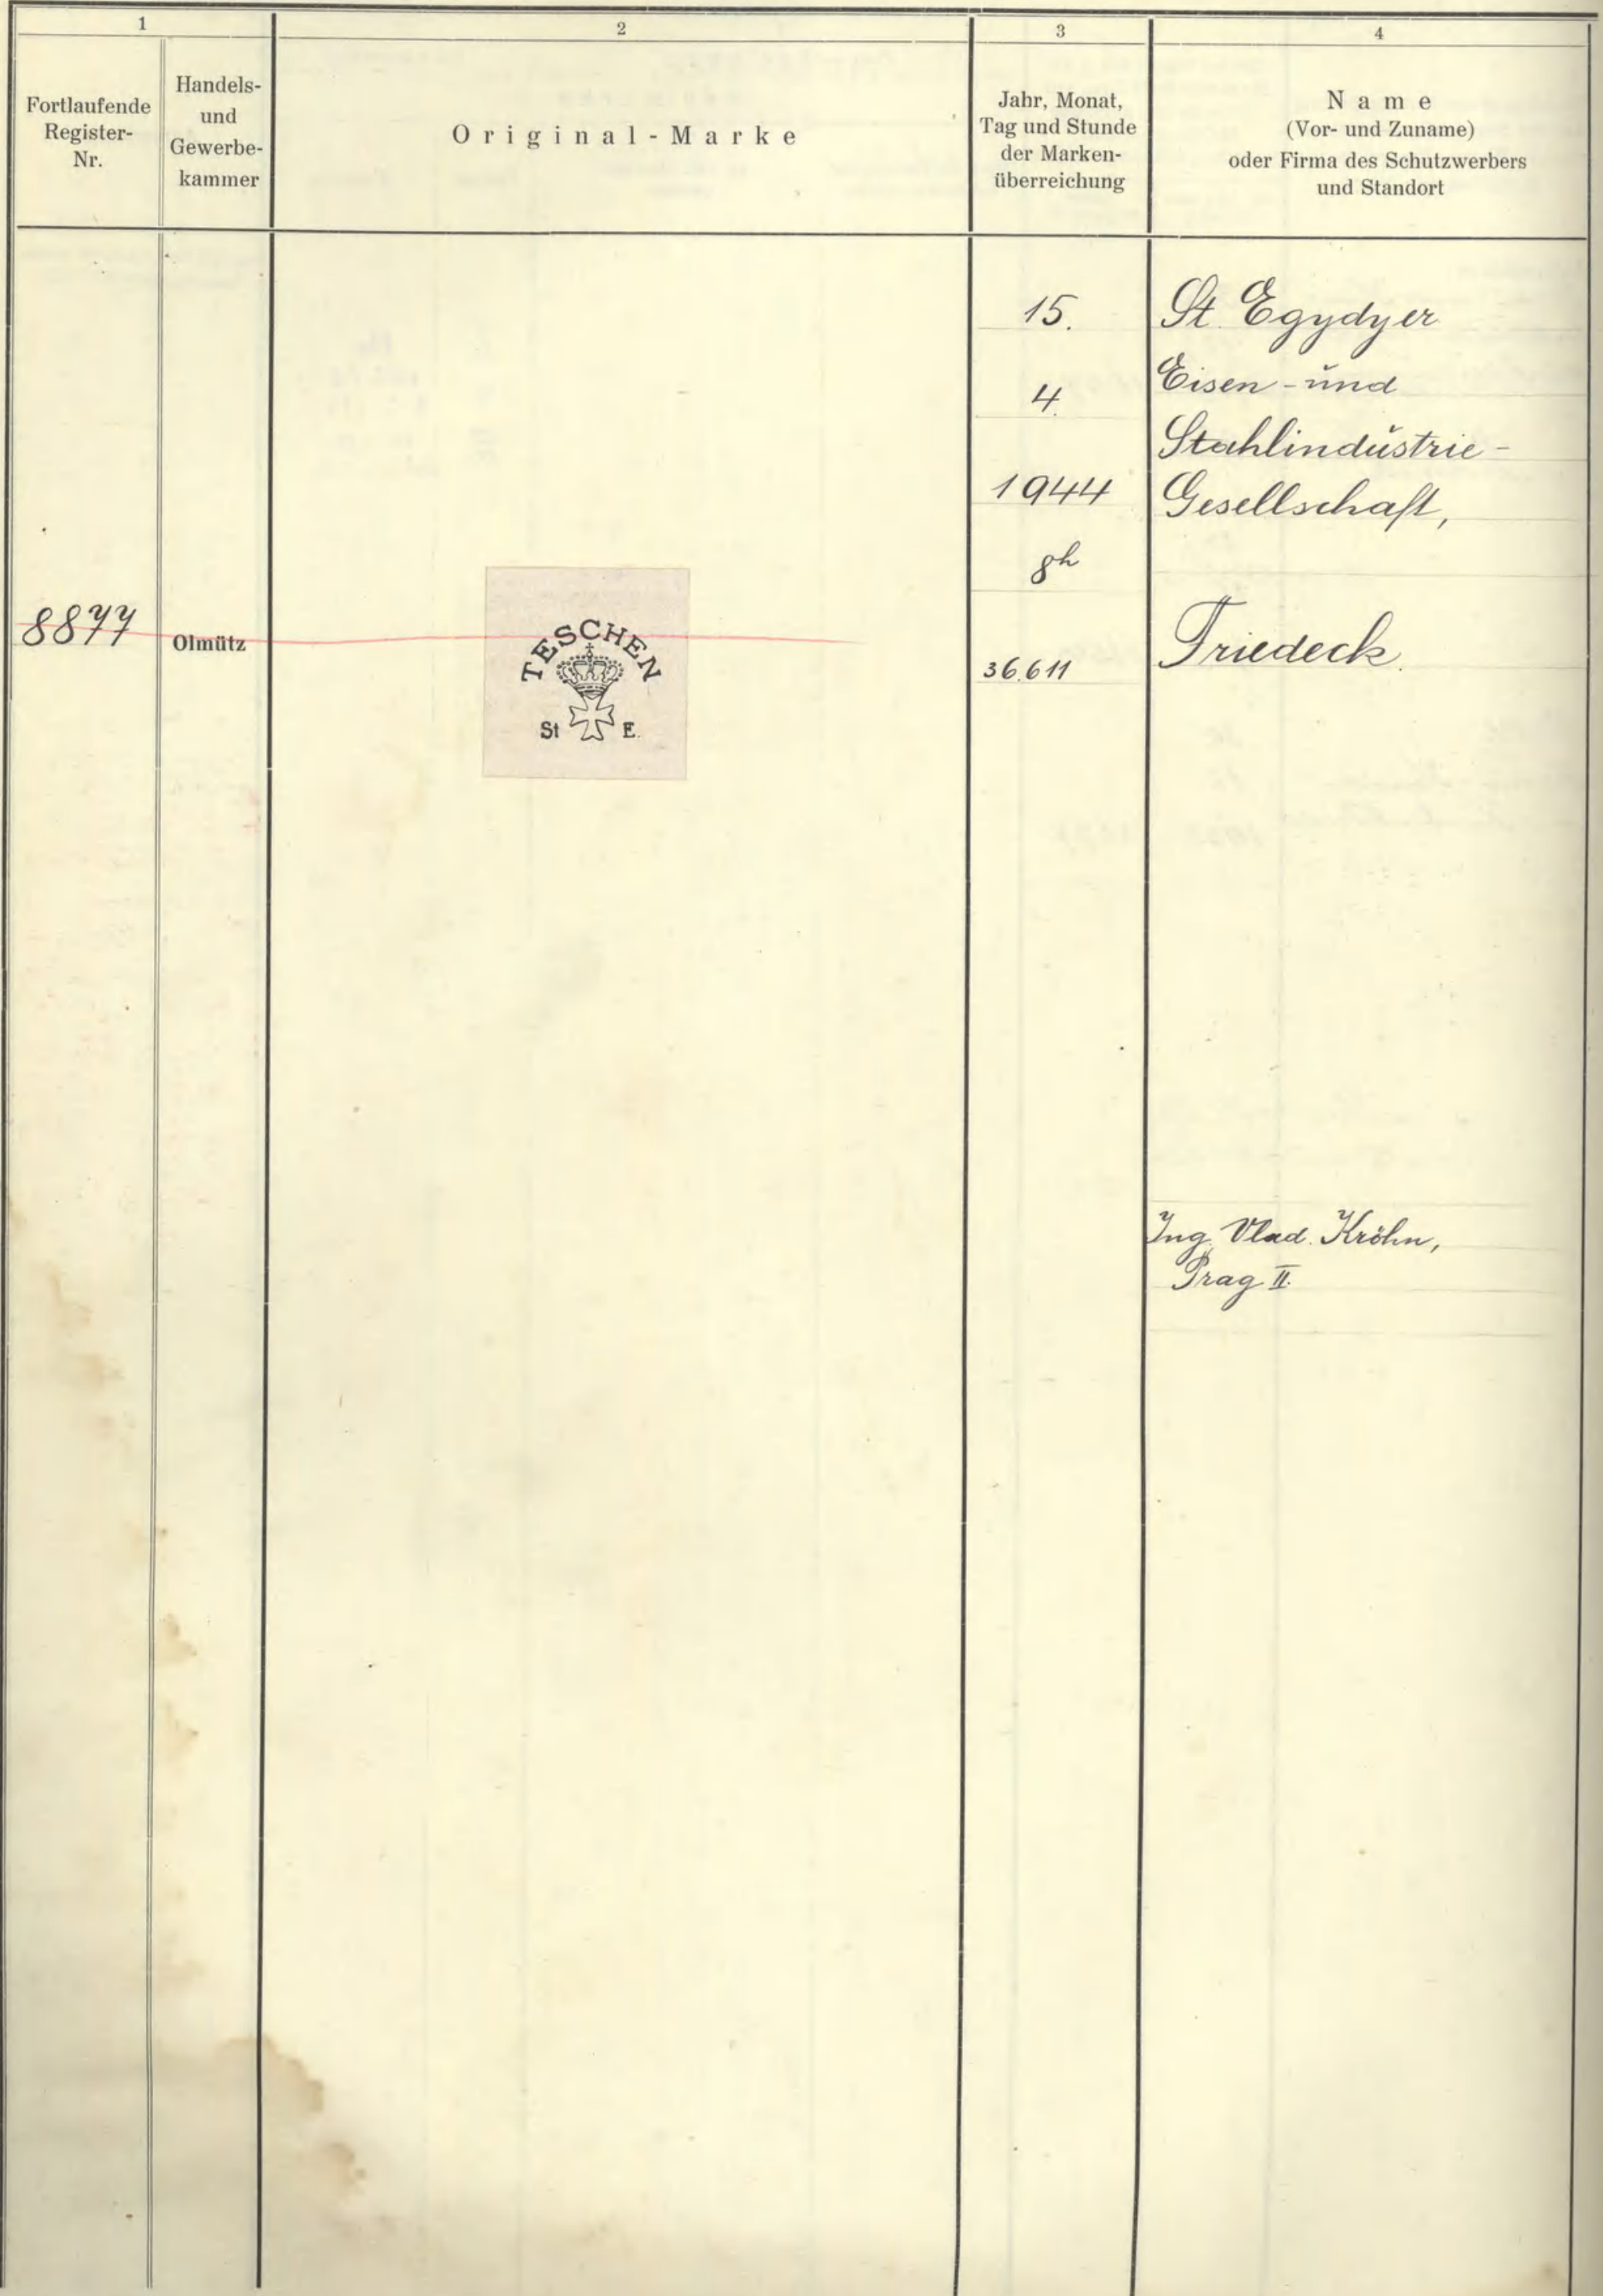 1
2
3
4
Fortlaufende
Register-
Nr.
Handels-
und
Gewerbe-
kammer
Original-Marke
Jahr, Monat,
Tag und Stunde
der Marken-
überreichung
Name
(Vor- und Zuname)
oder Firma des Schutzwerbers
und Standort
8877
Olmütz
TESCHEN
St E.
15.
4.
1944
8h
36.611
St. Egydyer
Eisen- und
Stahlindustrie-
Gesellschaft,
Friedeck.
Ing. Vlad. Kröhn,
Prag II.